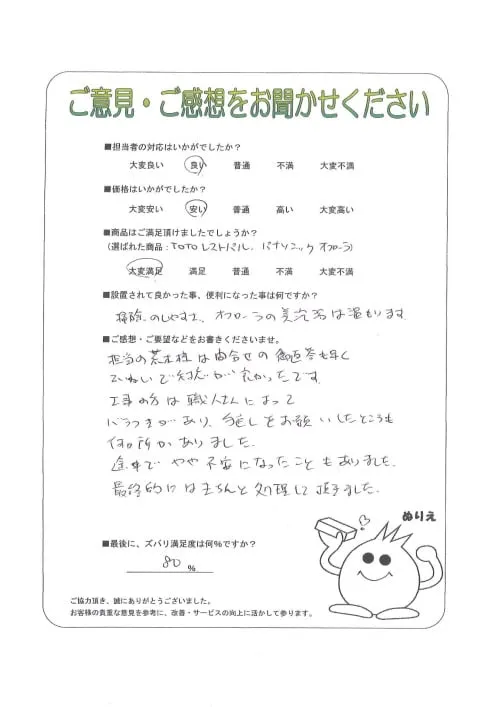 ご意見・ご感想をお聞かせください
■担当者の対応はいかがでしたか？
大変良い 良い 普通 不満 大変不満
■価格はいかがでしたか？
大変安い 安い 普通 高い 大変高い
■商品はご満足頂けましたでしょうか？
(選ばれた商品：TOTOレストパル、パナソニック オフローラ)
大変満足 満足 普通 不満 大変不満
■設置されて良かった事、便利になった事は何ですか？
掃除のしやすさ、オフローラの美泡湯は温もります。
■ご感想・ご要望などをお書きくださいませ。
担当の荒木様は問合せの御返答も早く
ていねいで対応が良かったです。
工事の方は職人さんによって
バラつきがあり、手直しをお願いしたところも
何ヶ所かありました。
途中でやや不安になったこともありました。
最終的にはきちんと処理して頂きました。
ぬりえ
■最後に、ズバリ満足度は何%ですか？
80 %
ご協力頂き、誠にありがとうございました。
お客様の貴重な意見を参考に、改善・サービスの向上に活かして参ります。